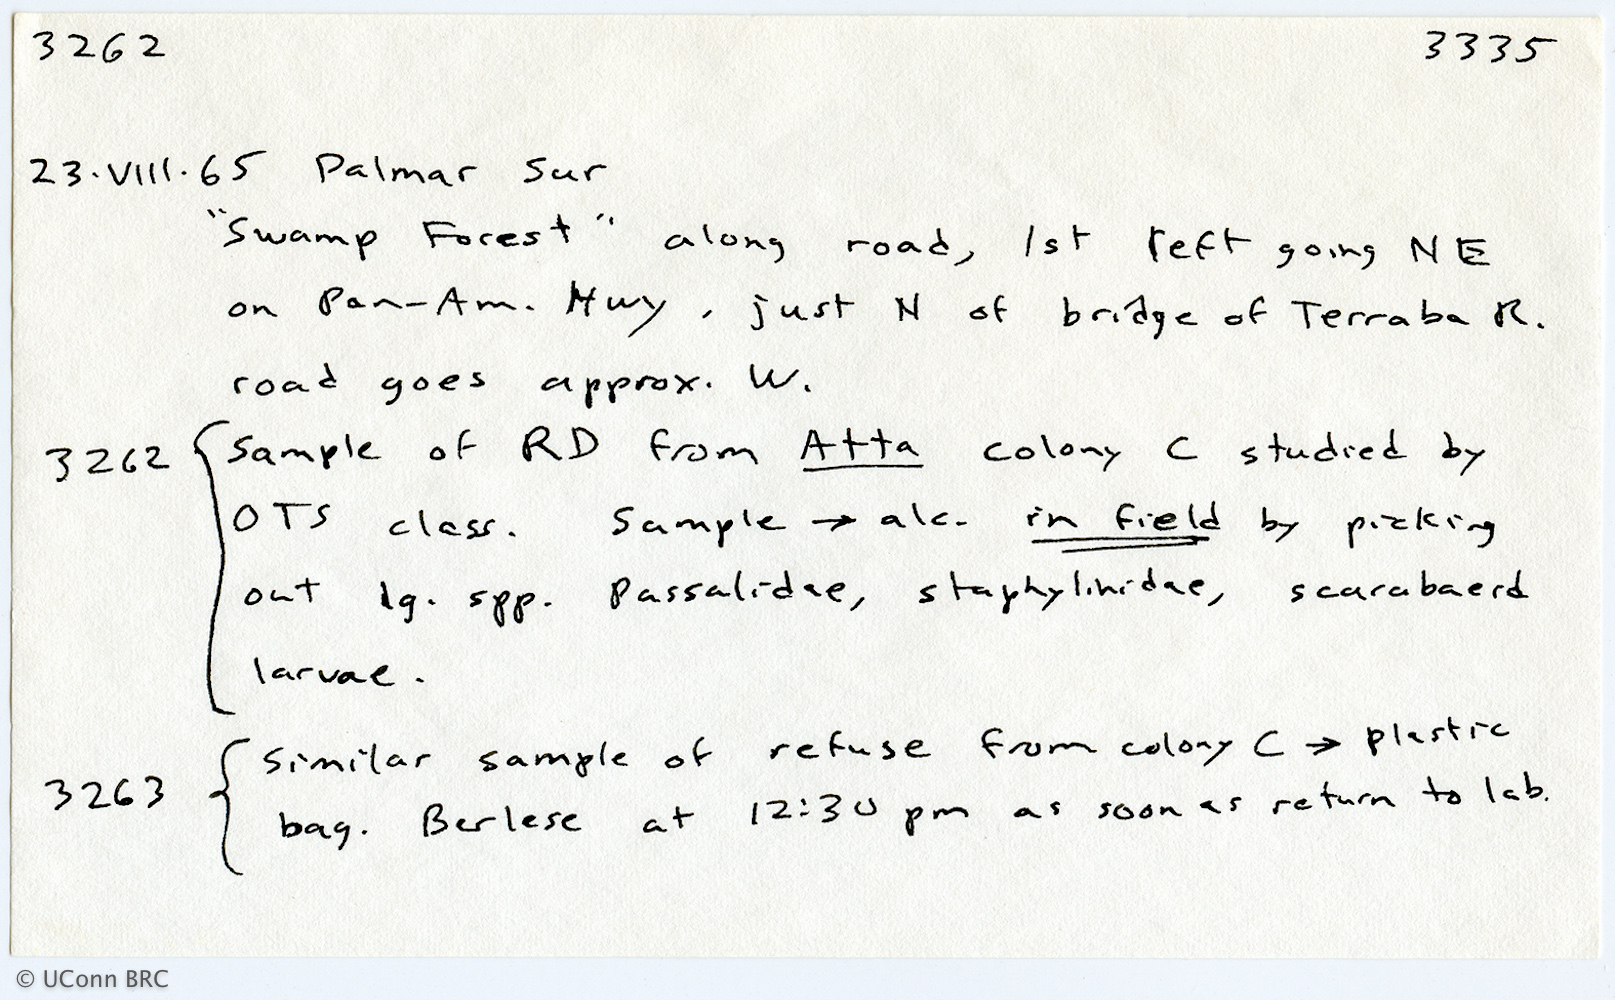 3262 3335
23.VIII.65 Palmar Sur
"Swamp Forest" along road, 1st left going NE
on Pan-Am. Hwy, just N of bridge of Terraba R.
road goes approx. W.
3262 { Sample of RD from Atta colony C studied by
OTS class. Sample → alc. in field by picking
out lg. spp. Passalidae, staphylinidae, scarabaeid
larvae.
3263 { Similar sample of refuse from colony C → plastic
bag. Berlese at 12:30 pm as soon as return to lab.
© UConn BRC